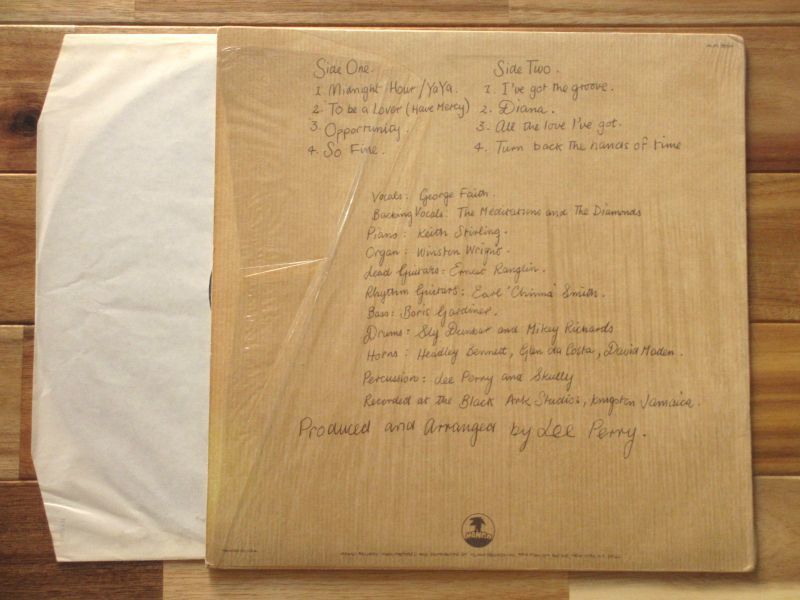 Side One.
1. Midnight Hour / YaYa.
2. To be a Lover (Have Mercy)
3. Opportunity.
4. So Fine.
Side Two.
1. I've got the groove.
2. Diana.
3. All the love I've got.
4. Turn back the hands of time
Vocals: George Faith.
Backing Vocals: The Meditations and The Diamonds
Piano: Keith Stirling.
Organ: Winston Wright.
Lead Guitars: Ernest Ranglin.
Rhythm Guitars: Earl 'Chinna' Smith.
Bass: Boris Gardiner.
Drums: Sly Dunbar and Mikey Richards
Horns: Headley Bennett, Glen da Costa, David Maden.
Percussion: Lee Perry and Skully
Recorded at the Black Ark Studios, Kingston Jamaica.
Produced and Arranged by Lee Perry.
MANGO